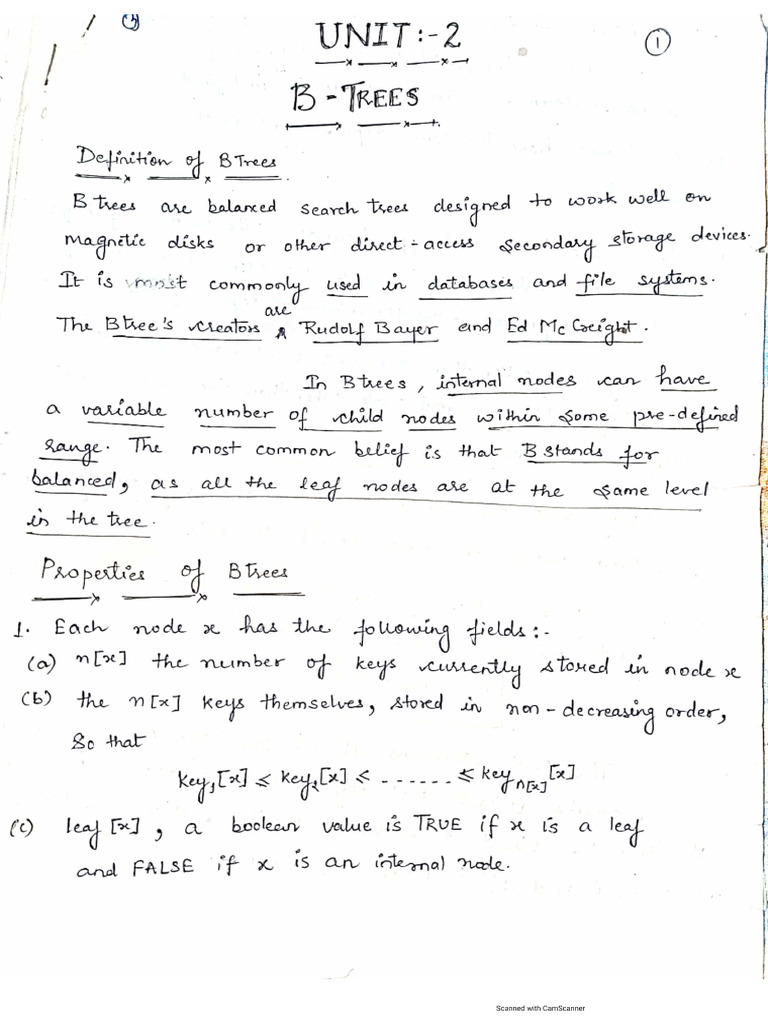 UNIT:-2
1
B-TREES
Definition of B Trees
B trees are balanced search trees designed to work well on
magnetic disks or other direct-access secondary storage devices.
It is most commonly used in databases and file systems.
are
The Btree's creators ∧ Rudolf Bayer and Ed McCreight.
In B trees, internal nodes can have
a variable number of child nodes within some pre-defined
range. The most common belief is that B stands for
balanced, as all the leaf nodes are at the same level
in the tree.
Properties of B trees
1. Each node x has the following fields:-
(a) n[x] the number of keys currently stored in node x
(b) the n[x] keys themselves, stored in non-decreasing order,
So that
key₁[x] ≤ key₂[x] ≤ ------ ≤ keyₙ[ₓ][x]
(c) leaf [x], a boolean value is TRUE if x is a leaf
and FALSE if x is an internal node.
Scanned with CamScanner